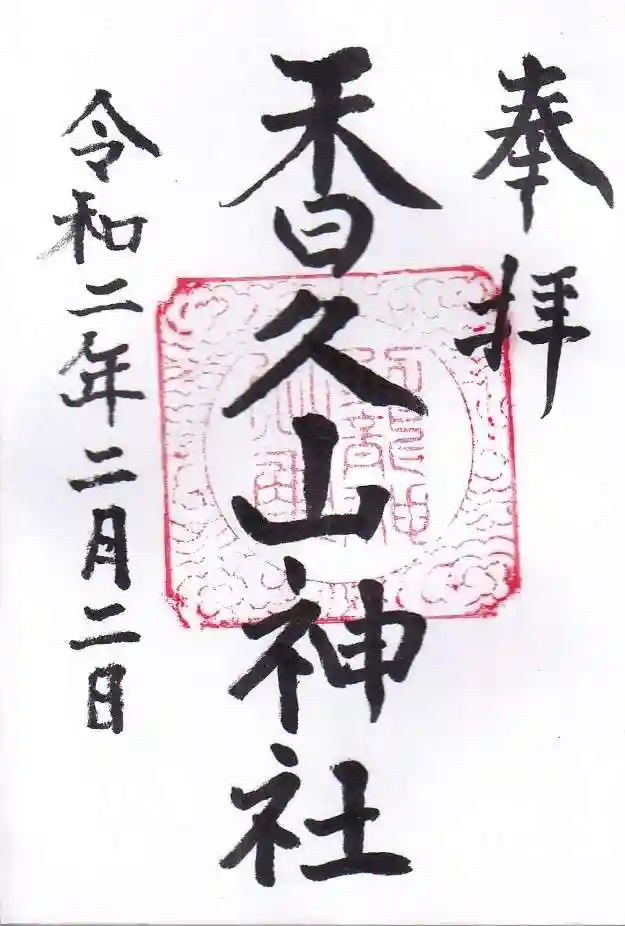 奉拝
香久山神社
令和二年二月二日